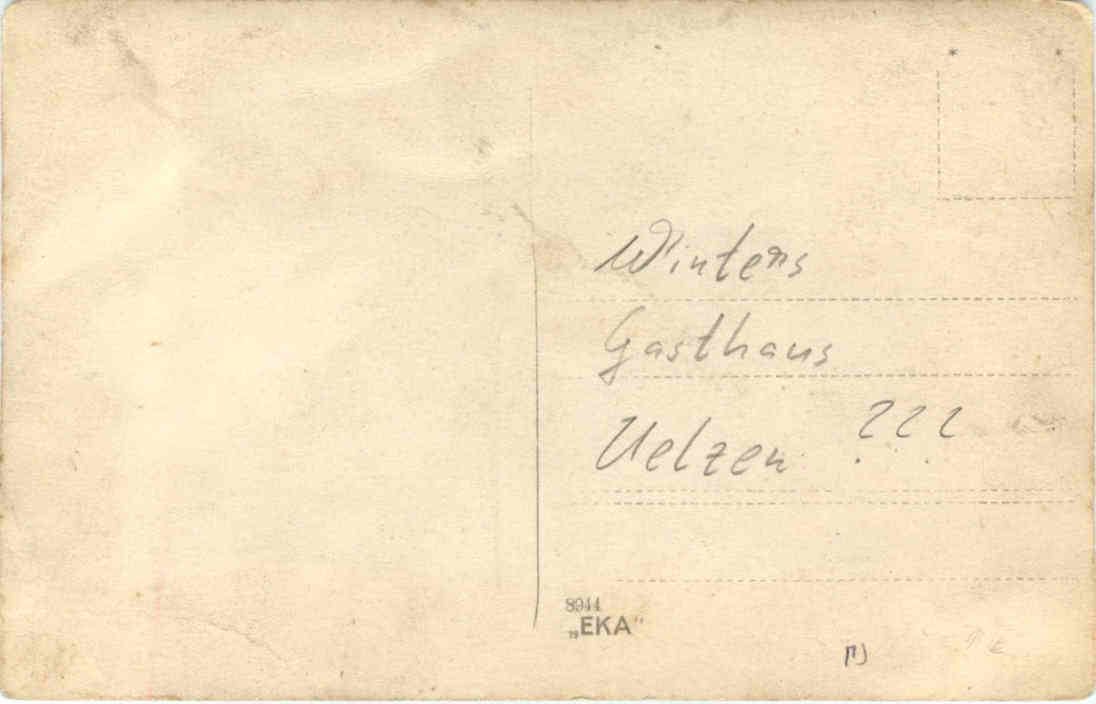 Winters
Gasthaus
Uelzen ???
8944
„EKA"